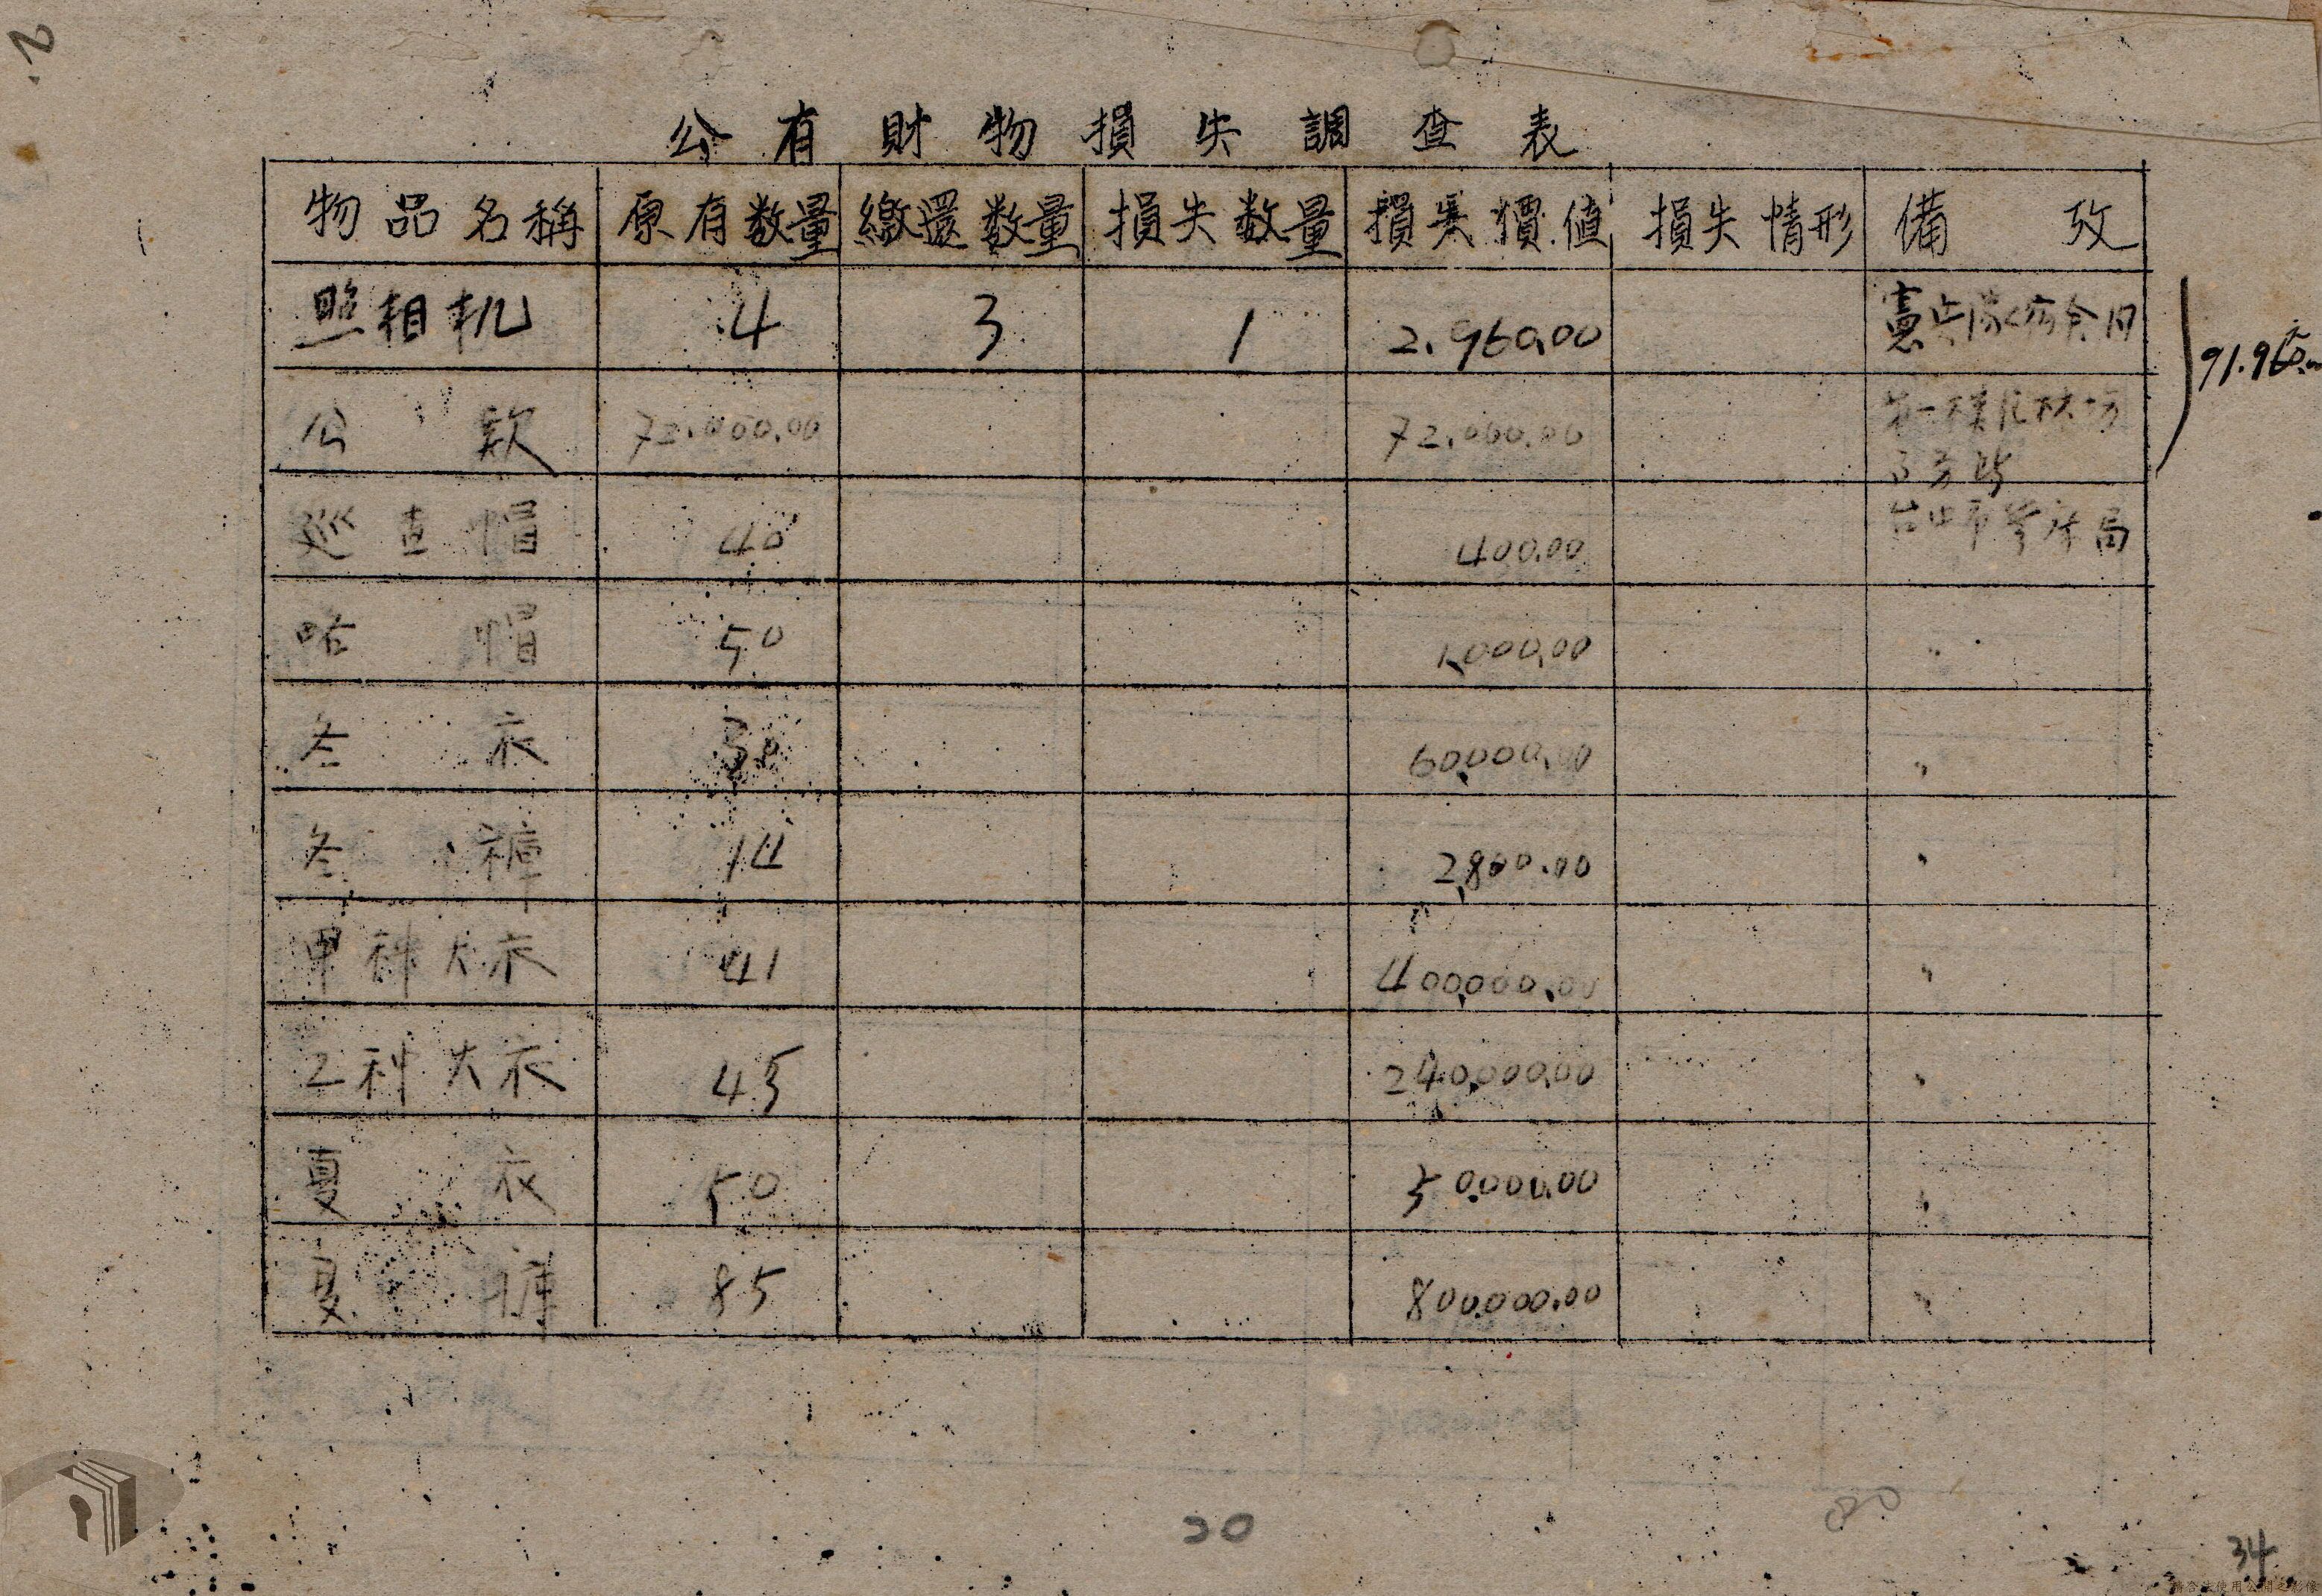 2.
公有財物損失調查表
物品名稱 原有数量 繳還数量 損失数量 損失價值 損失情形 備攷
照相机 4 3 1 2.960.00 憲兵隊
91.960.00
公款 72.000.00 72.000.00 第一模範林場
巡查帽 40 400.00 台中市警察局
帽 50 1.000.00 〃
冬衣 30 60.000.00 〃
冬褲 14 2.800.00 〃
甲種大衣 41 400.000.00 〃
乙种大衣 45 240.000.00 〃
夏衣 50 50.000.00 〃
夏褲 85 800.000.00 〃
20
34